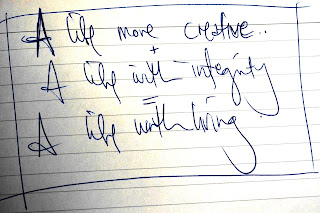 A life more creative..
+
A life with integrity
=
A life worth living